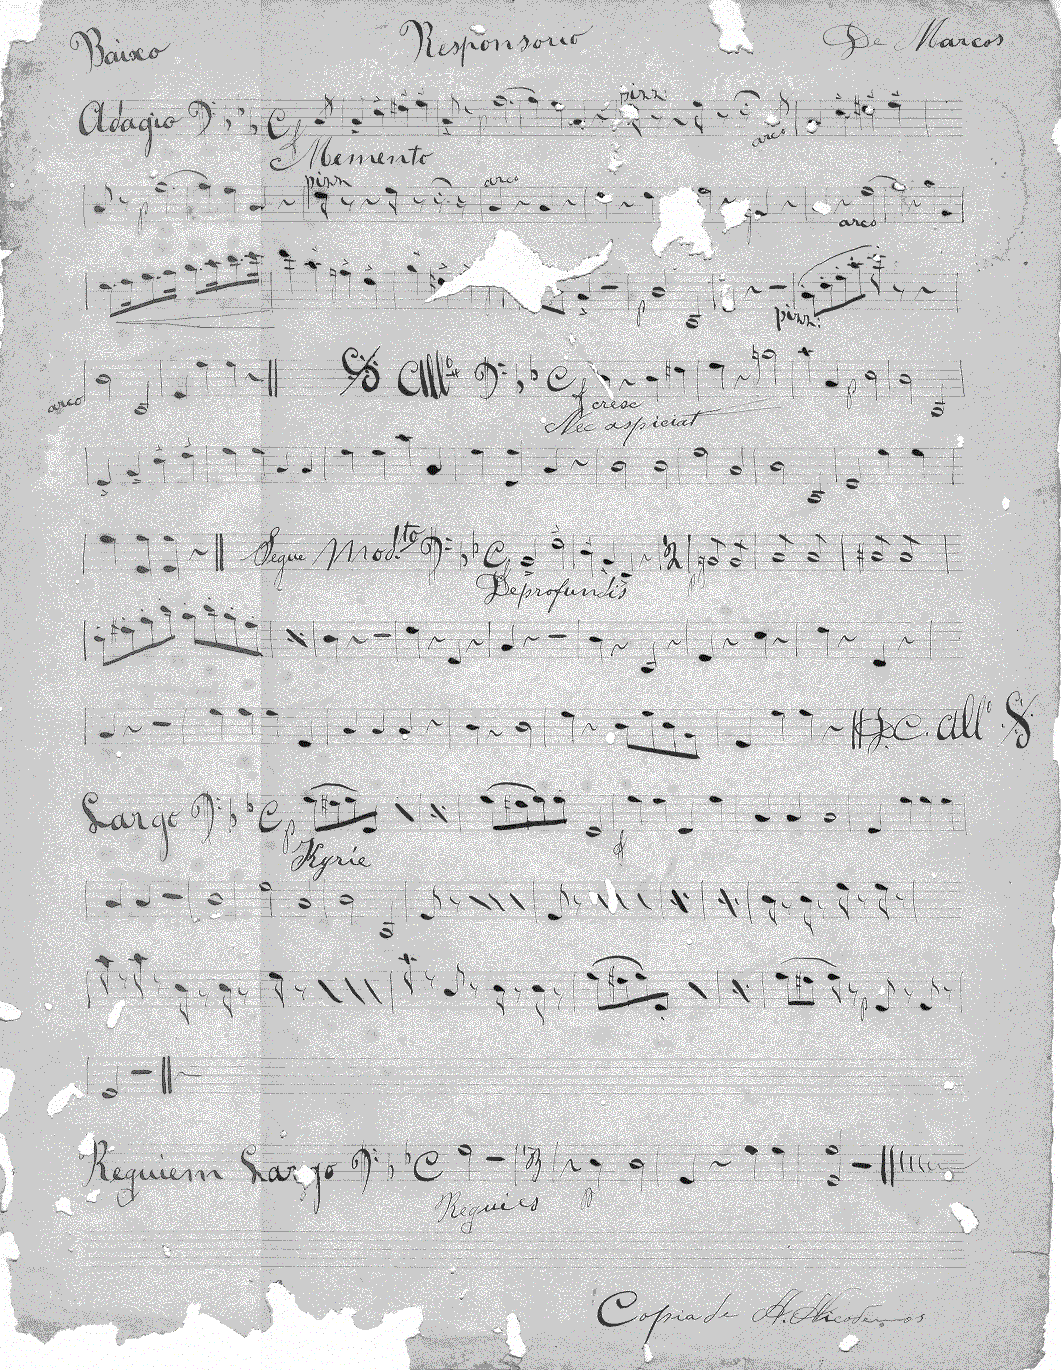 Baixo Responsorio De Marcos
Adagio pizz: arco
Memento
pizz arco arco
p pizz:
arco All.º cresc
Nec aspiciat
Segue Mod.to
Deprofundis
D.C. all.º
Largo p
Kyrie
p
Requiem Largo
Requies p
Copia de H. Nicodemos